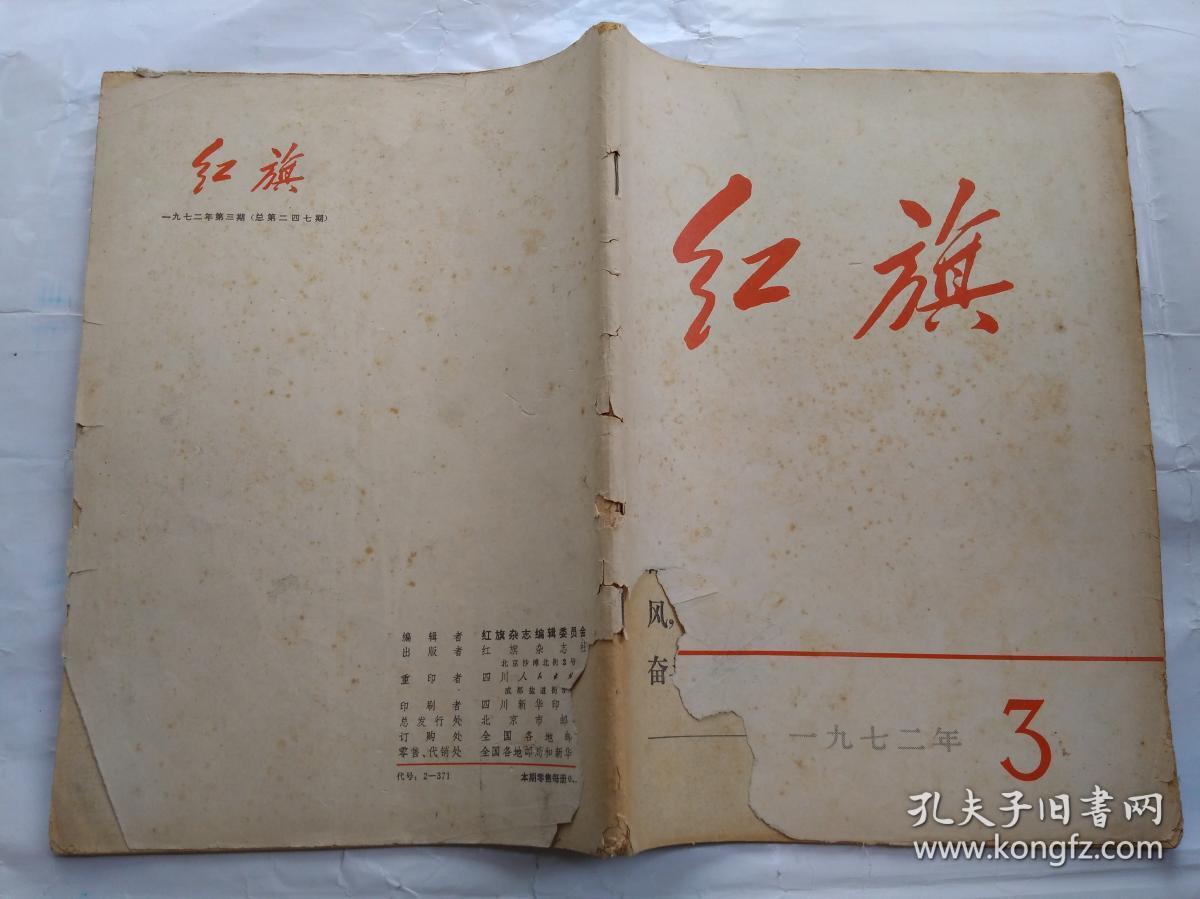 红旗
一九七二年第三期（总第二四七期）
编辑者 红旗杂志编辑委员会
出版者 红旗杂志社
北京沙滩北街2号
重印者 四川人
成都盐道街
印刷者 四川新华印
总发行处 北京市邮
订购处 全国各地邮
零售、代销处 全国各地邮局和新华
代号：2—371 本期零售每册0.
红旗
风，
奋
一九七二年 3
孔夫子旧书网
www.kongfz.com